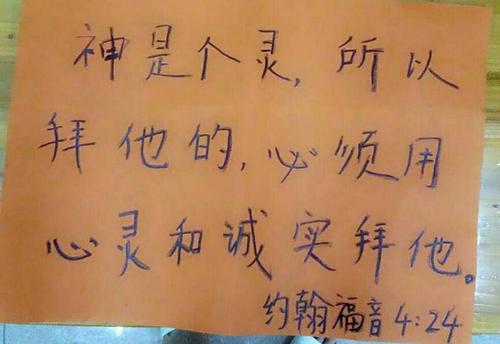 神是个灵,所以
拜他的,必须用
心灵和诚实拜他。
约翰福音 4:24